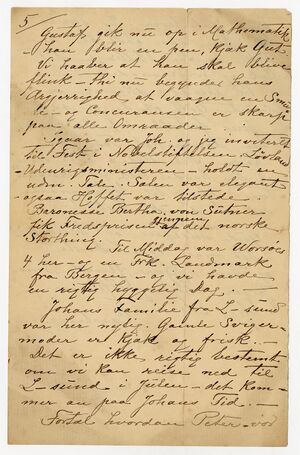 5
Gustaf gik nu op i Mathematik
han blir en pen, kjæk Gut
Vi haaber at han skal blive
flink – thi nu begynder hans
Ærgjerrighed at vaagne en Smu-
le – og Concuransen er skarp
paa alle Omraader.
Igaar var Joh. og jeg inviteret
til Fest i Nobelstiftelsen Løvland
Udenrigsministeren – holdt en
udm. Tale. Salen var elegant
ogsaa Hoffet var tilstede.
Baronesse Bertha von Sutner
fik Fredsprisen gjennem af det norske
Storthing. Til Middag var Worsøes
4 her – og en Frk. Landmark
fra Bergen – og vi havde
en rigtig hyggelig Dag.
Johans Familie fra L-sund
var her nylig. Gamle Sviger-
moder er kjæk og frisk. –
Det er ikke rigtig bestemt
om vi kan reise ned til
L-sund i Julen – det kom-
mer an paa Johans Tid. –
Fortal hvordan Peter